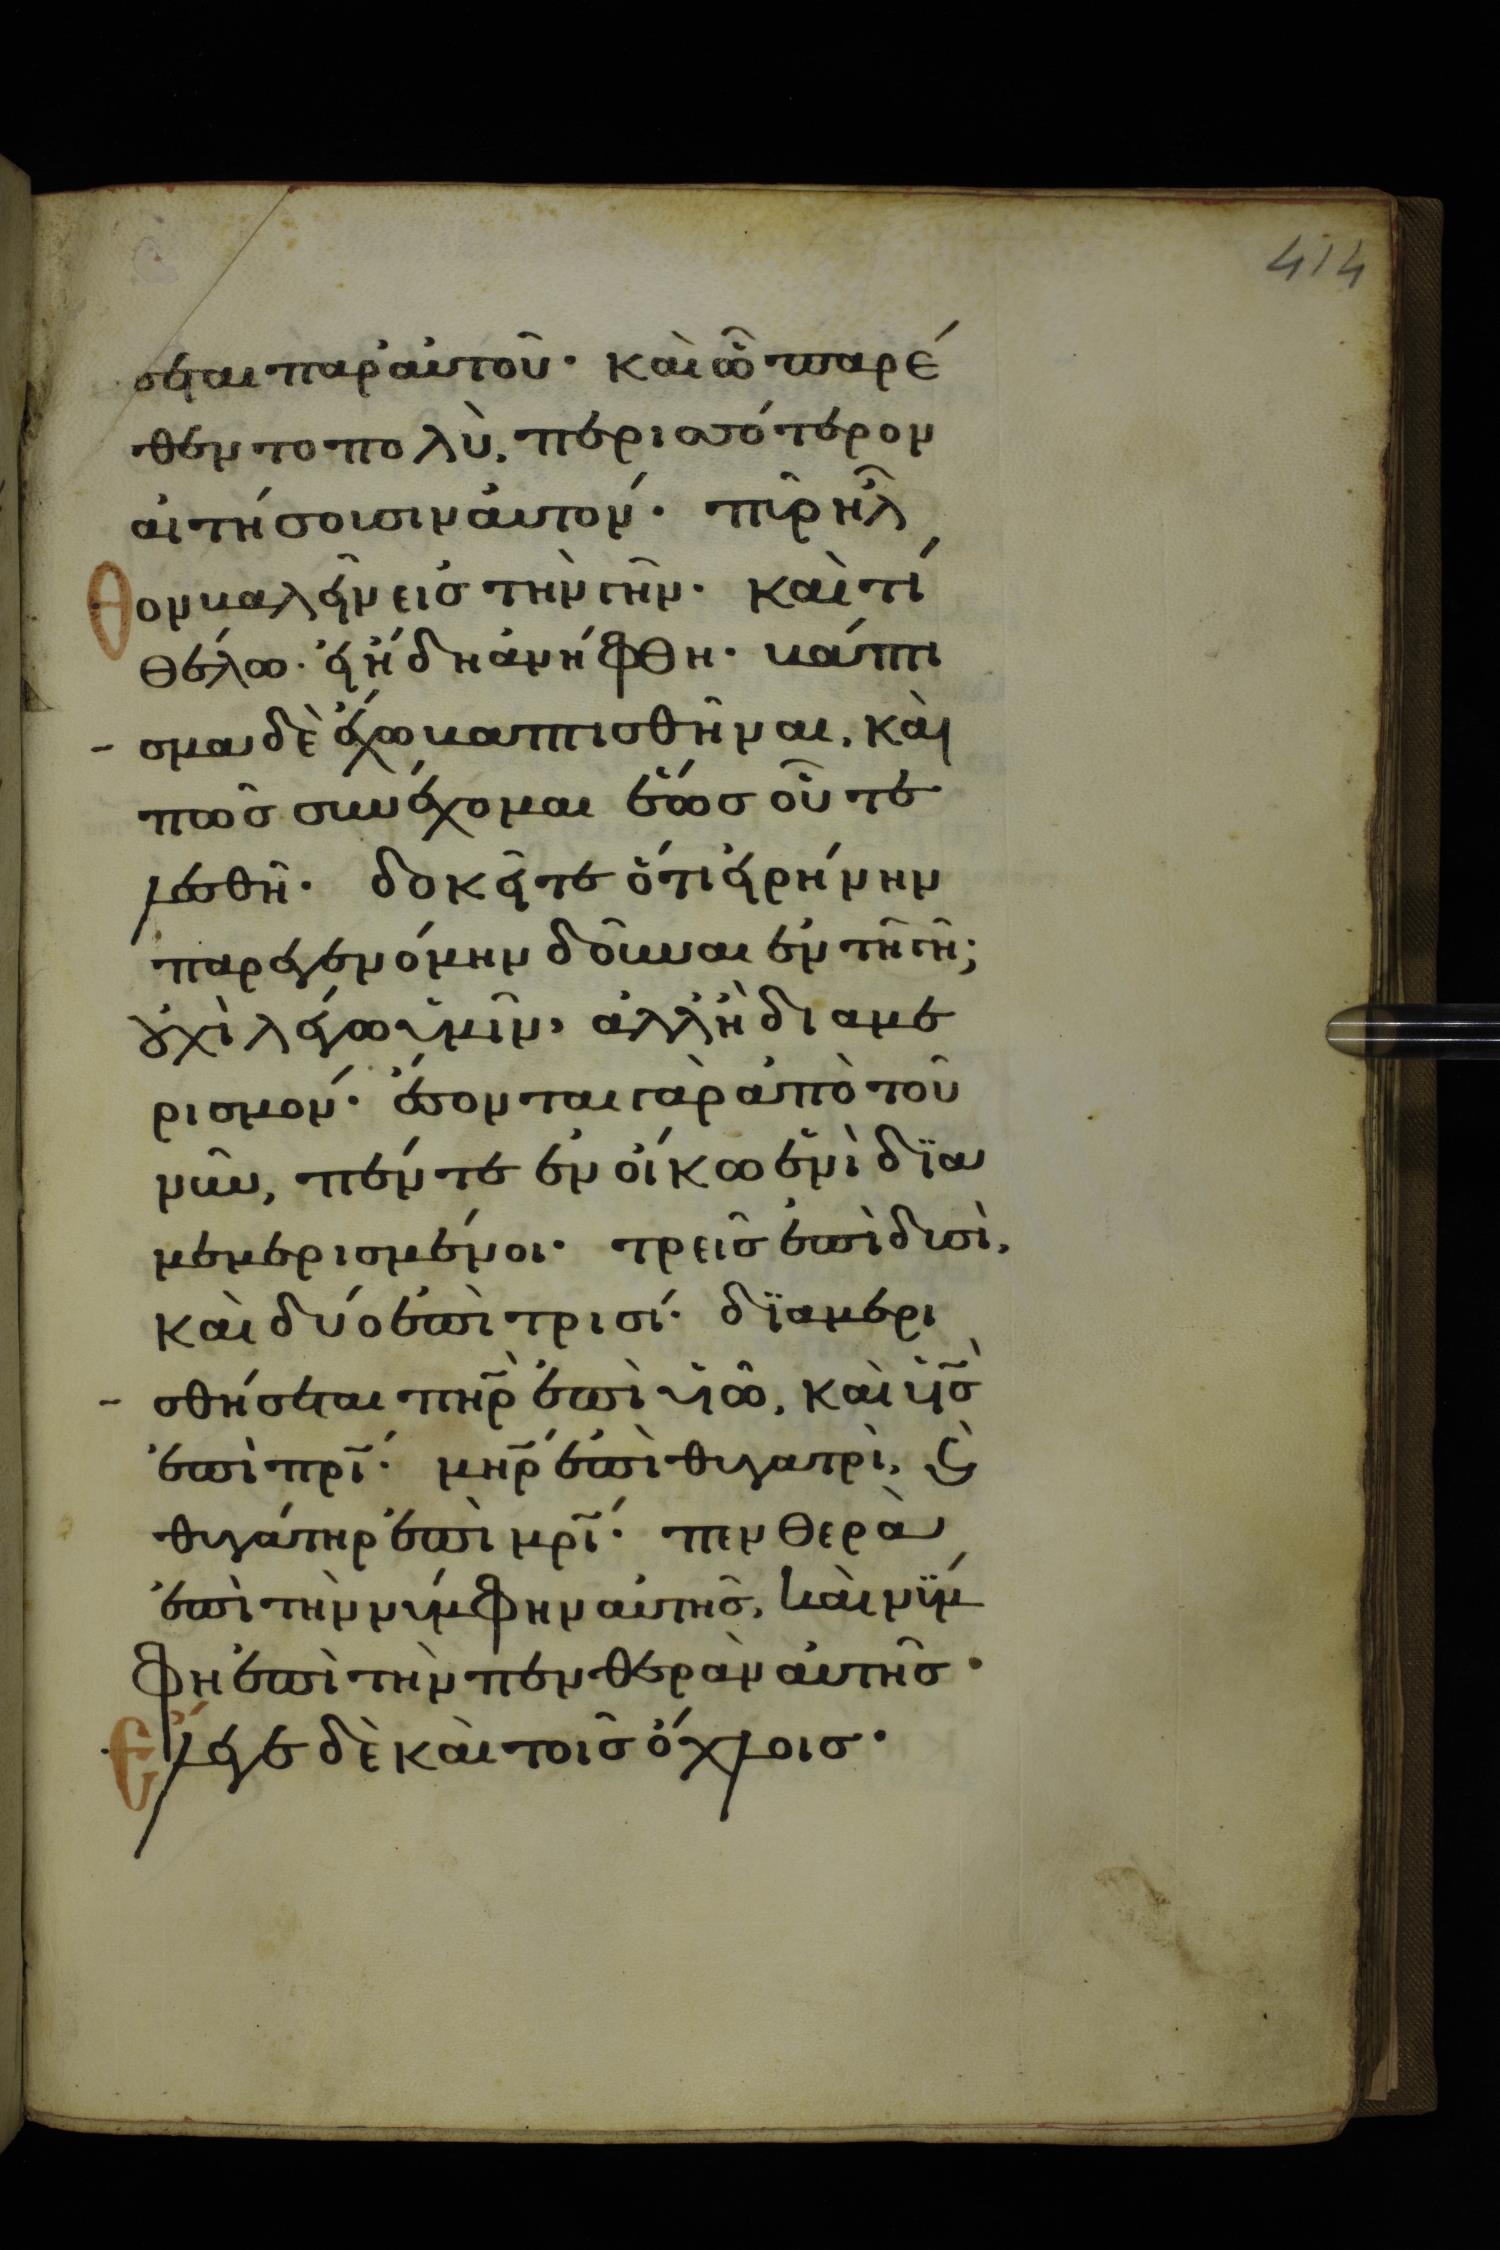 414
σεται παρ' αὐτοῦ· καὶ ᾧ παρέ
θεντο πολὺ, περισσότερον
αἰτήσουσιν αὐτόν· πῦρ ἦλ
θον βαλεῖν εἰς τὴν γῆν· καὶ τί
θέλω· εἰ ἤδη ἀνήφθη· βάπτι
σμα δὲ ἔχω βαπτισθῆναι, καὶ
πῶς συνέχομαι ἕως οὗ τε
λεσθῆ· δοκεῖτε ὅτι εἰρήνην
παρεγενόμην δοῦναι ἐν τῆ γῆ;
οὐχὶ λέγω ὑμῖν, ἀλλ' ἢ διαμε
ρισμόν· ἔσονται γὰρ ἀπὸ τοῦ
νῦν, πέντε ἐν οἴκω ἑνὶ δϊα
μεμερισμένοι· τρεῖς ἐπὶ δυσὶ,
καὶ δύο ἐπὶ τρισί· δϊαμερι
σθήσεται πηρ ἐπὶ υἱῶ, καὶ υἱς
ἐπὶ πρι· μηρ ἐπὶ θυγατρὶ, ϗ
θυγάτηρ ἐπὶ μρι· πενθερὰ
ἐπὶ τὴν νύμφην αὐτῆς, καὶ νύμ
φη ἐπὶ τὴν πενθερὰν αὐτῆς·
Ἔλεγε δὲ καὶ τοῖς ὄχλοις·